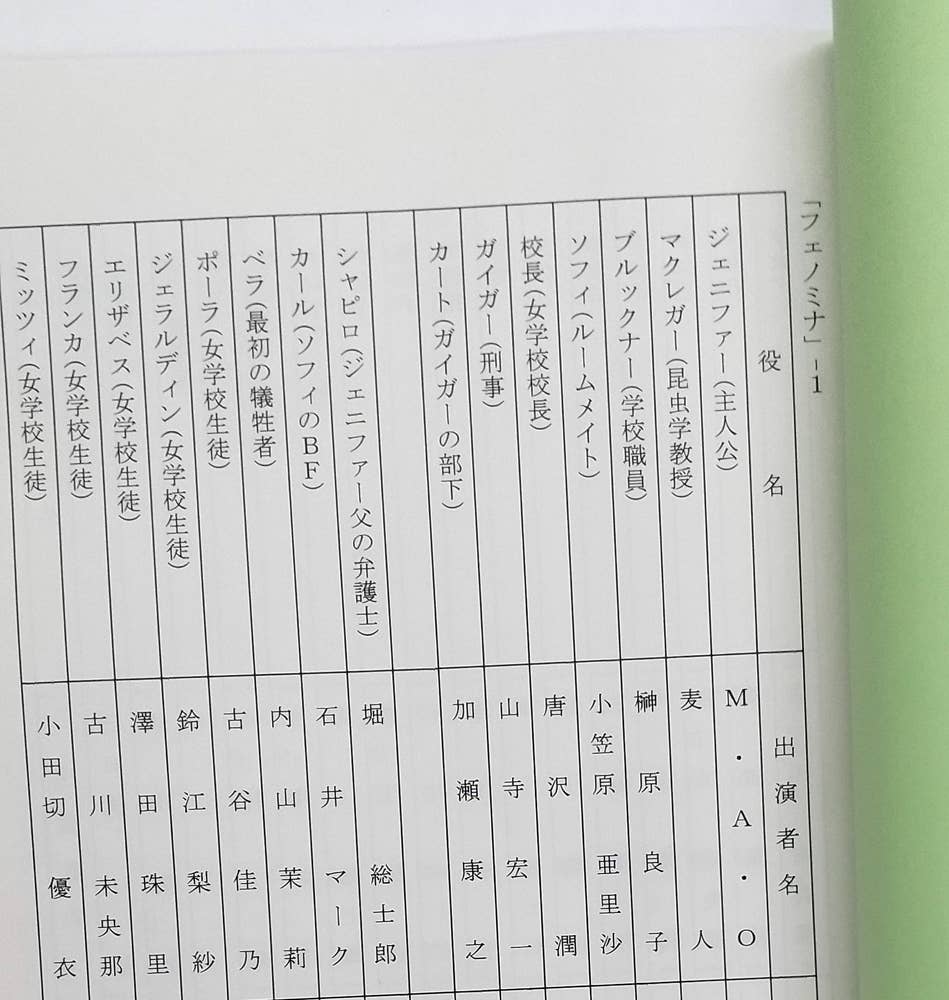 「フェノミナ」-1
役名 出演者名
ジェニファー(主人公) M・A・O
マクレガー(昆虫学教授) 麦人
ブルックナー(学校職員) 榊原良子
ソフィ(ルームメイト) 小笠原亜里沙
校長(女学校校長) 唐沢潤
ガイガー(刑事) 山寺宏一
カート(ガイガーの部下) 加瀬康之
シャピロ(ジェニファー父の弁護士) 堀総士郎
カール(ソフィのBF) 石井マーク
ベラ(最初の犠牲者) 内山茉莉
ポーラ(女学校生徒) 古谷佳乃
ジェラルディン(女学校生徒) 鈴江梨紗
エリザベス(女学校生徒) 澤田珠里
フランカ(女学校生徒) 古川未央那
ミッツィ(女学校生徒) 小田切優衣